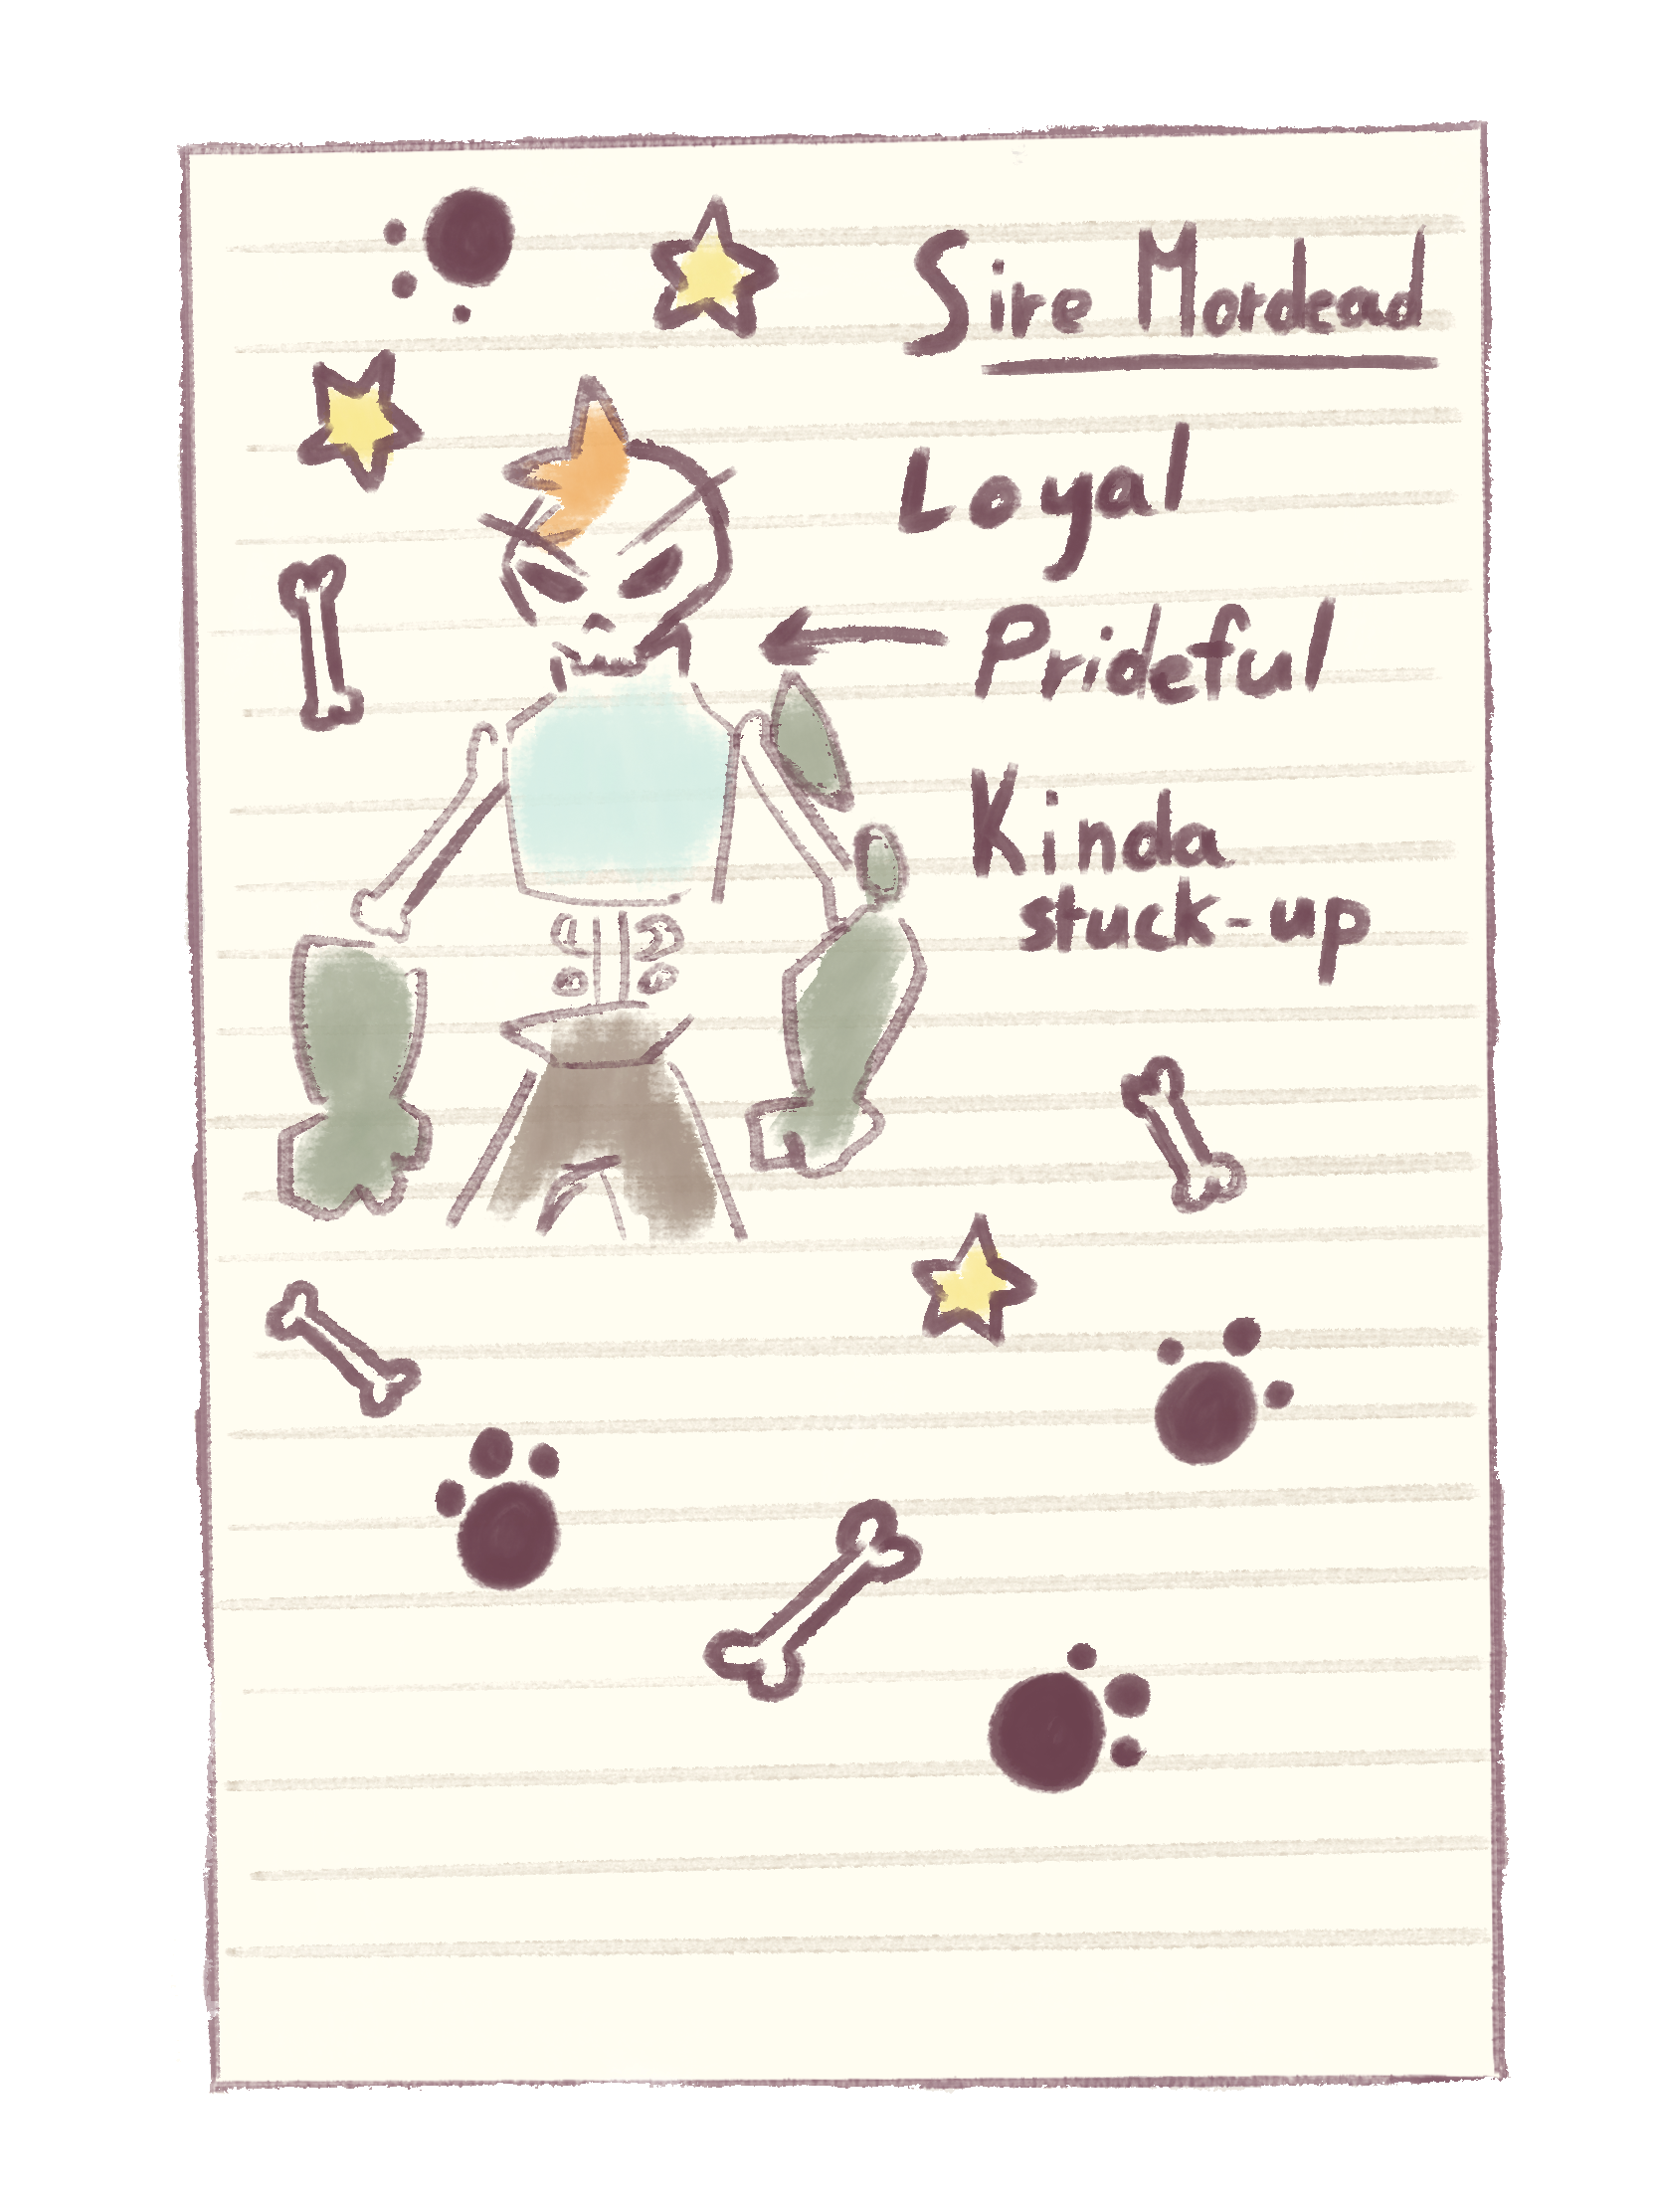 Sire Mordead
Loyal
Prideful
Kinda
stuck-up